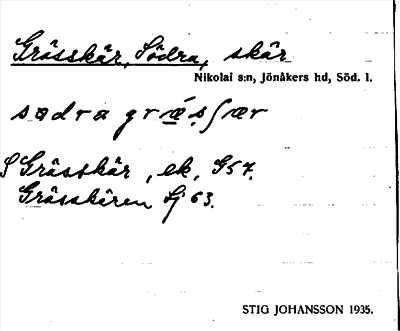 Grässkär, Södra, skär
Nikolai s:n, Jönåkers hd, Söd. l.
sødra græ̀sʃær
S Grässkär, ek, G57.
Grässkären Sj 63.
STIG JOHANSSON 1935.